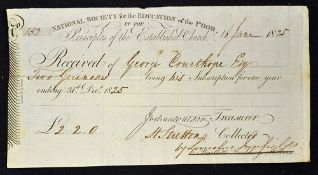 NATIONAL SOCIETY for the EDUCATION of the POOR
IN THE
Principles of the Established Church
No 152
16 June 1825
Received of George Courthope Esq
Two Guineas being his Subscription for one year
ending 31st Dec. 1825
£2.2.0
Joshua Watson Treasurer
Collector
by